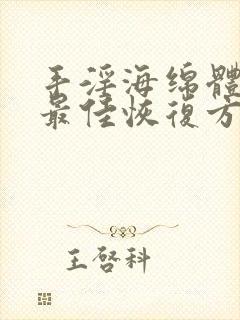 手淫海绵體
最佳恢復方
王啓科